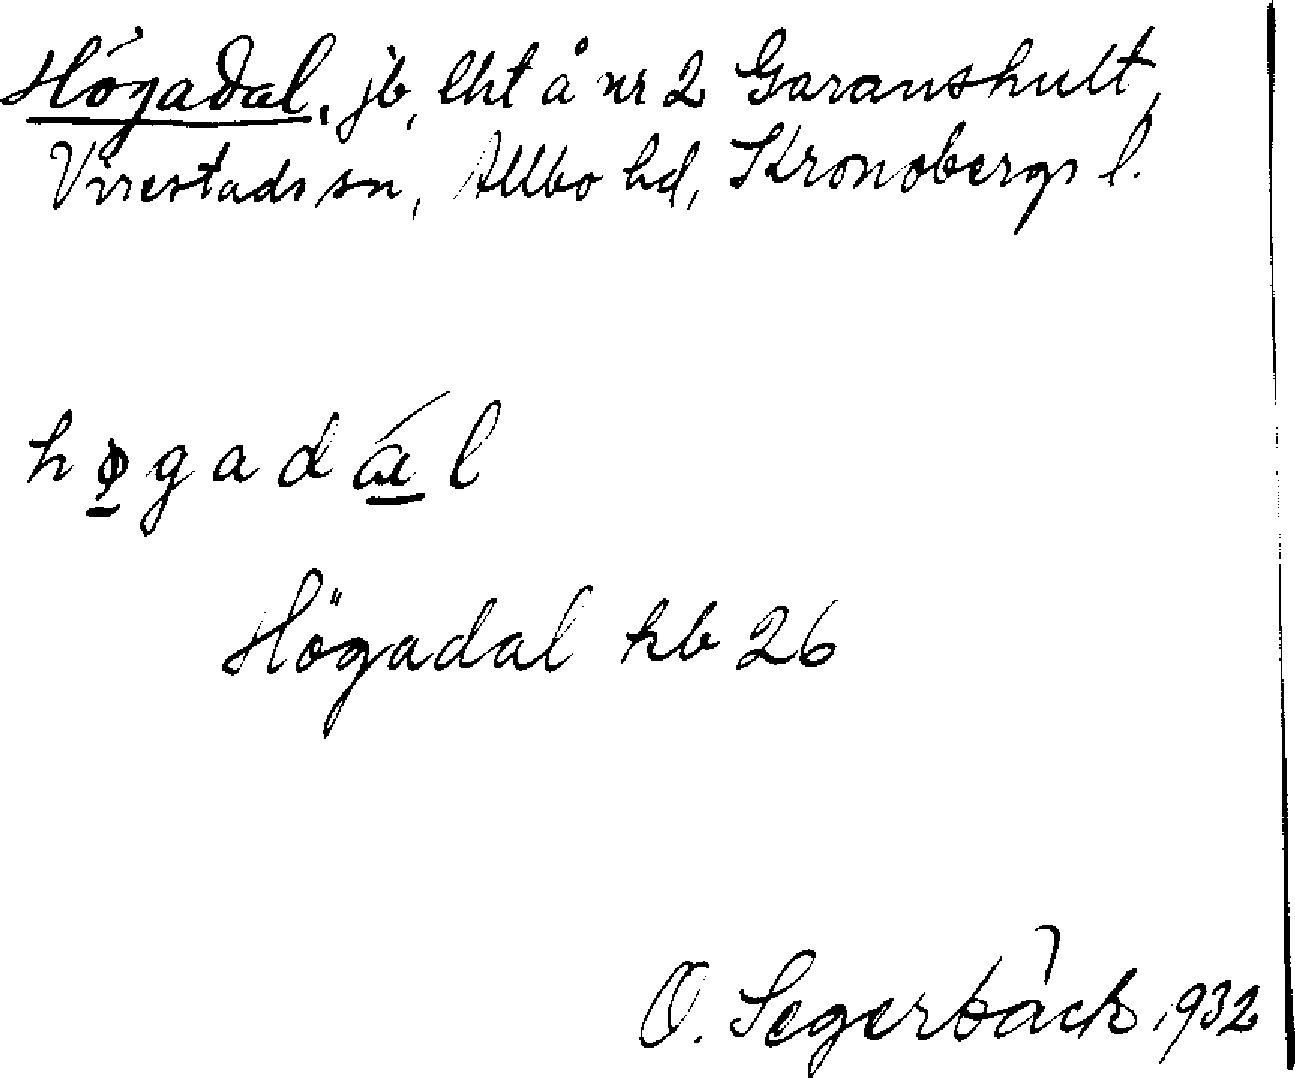 Högadal, jb, lht å nr 2 Garanshult,
Virestads sn, Allbo hd, Kronobergs l.
h ø̱ g a d ɑ̱́ l
Högadal hb 26
O. Segerbäck 1932